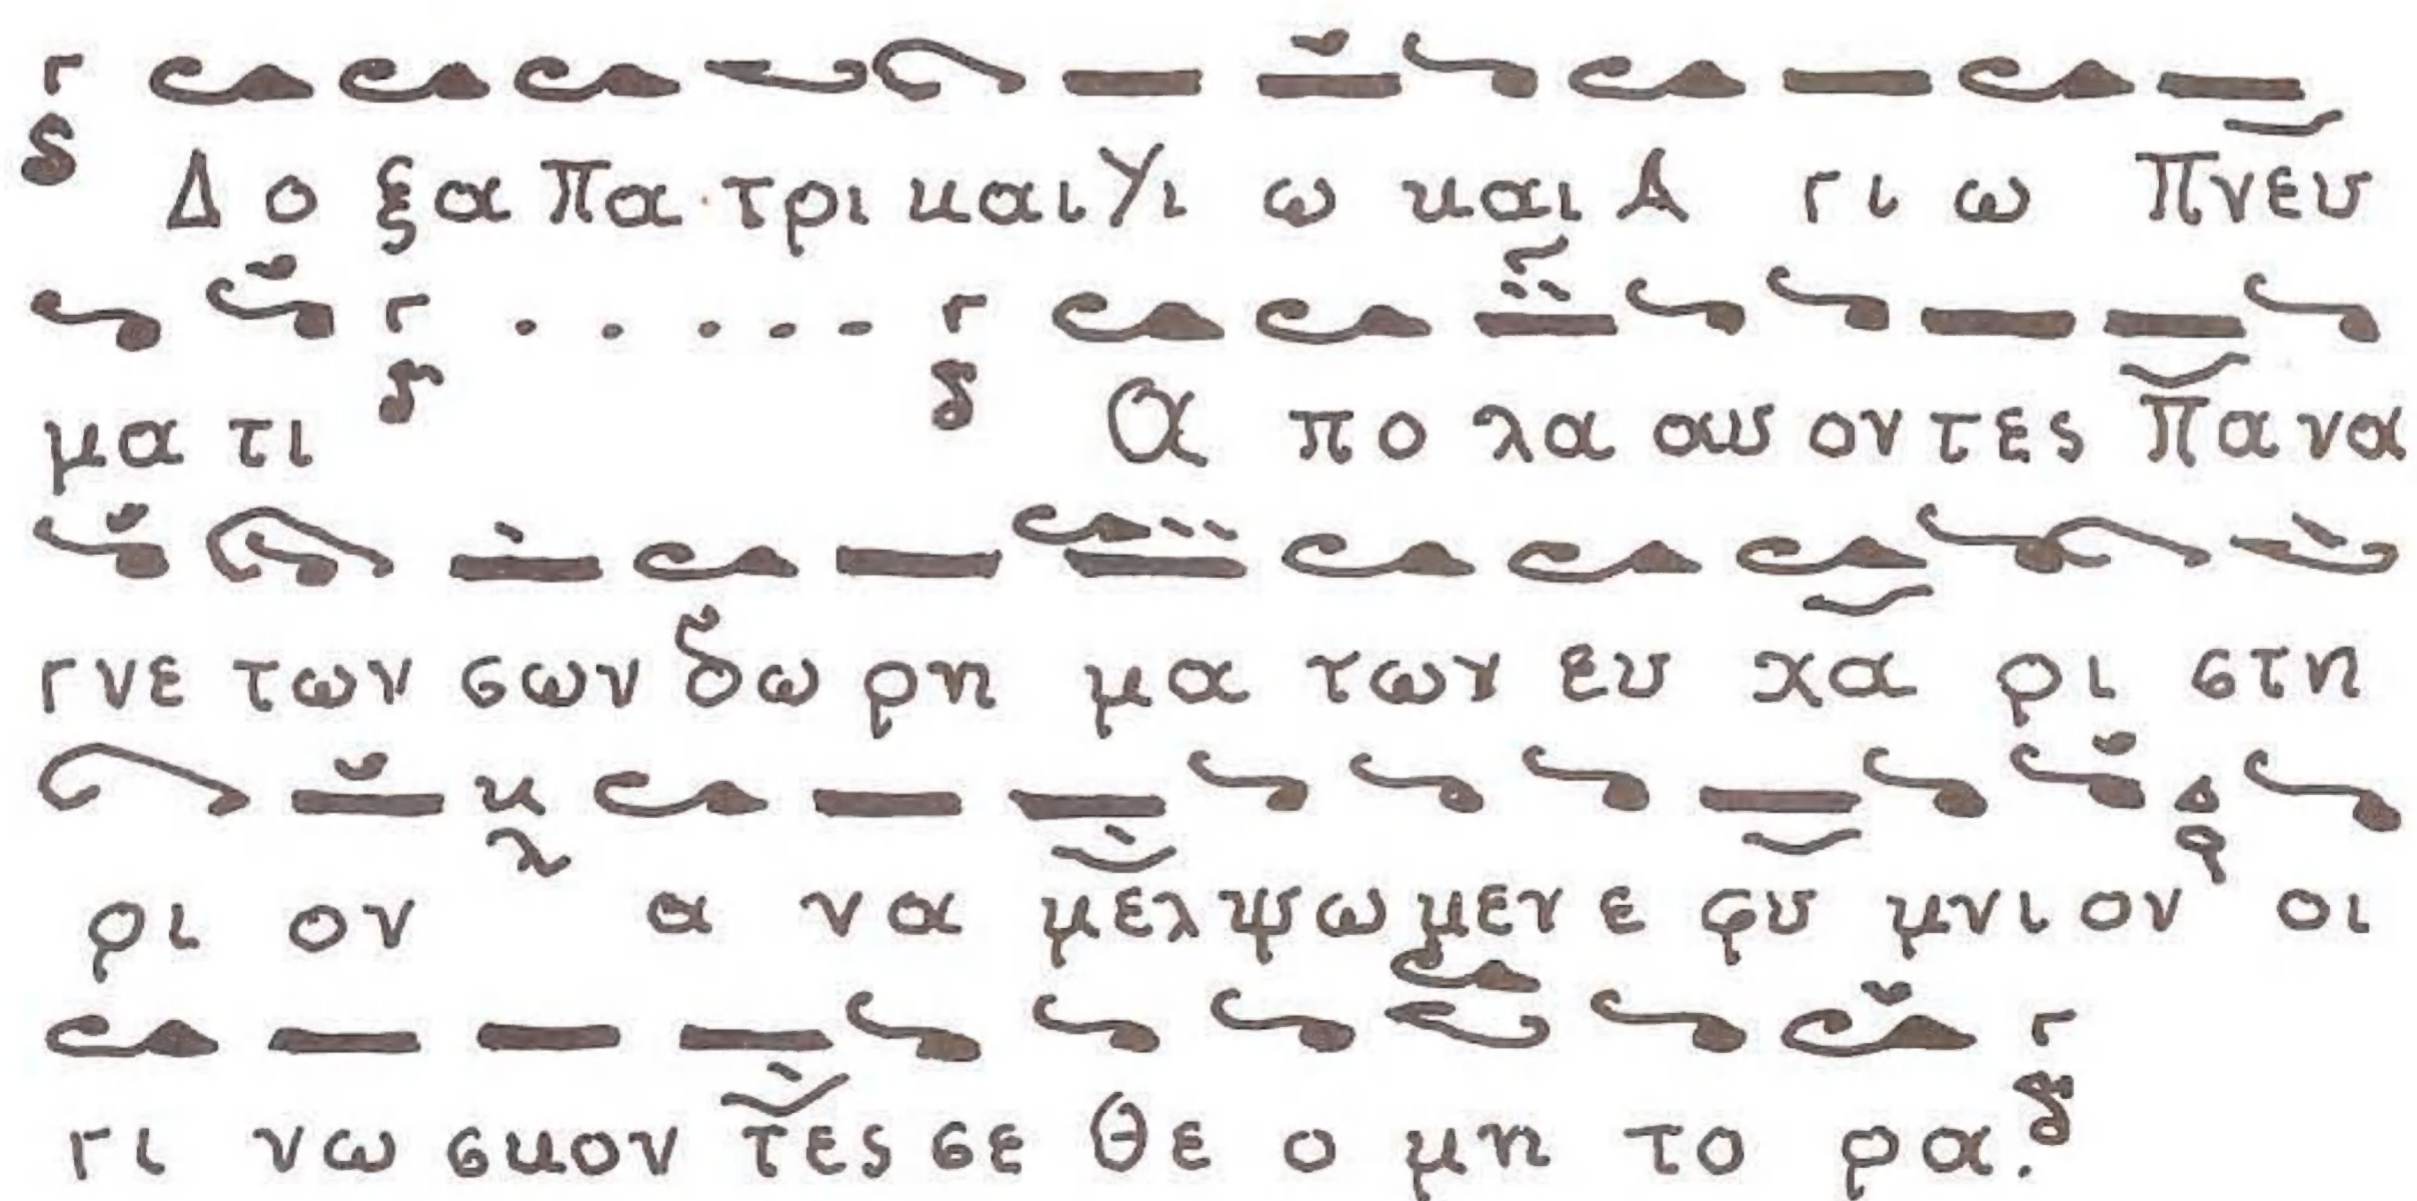 Δο ξα Πα τρι και Υι ω και Α γι ω Πνευ
μα τι Α πο λα αυ ον τες Παν α
γνε των σων δω ρη μα των ευ χα ρι στη
ρι ον α να μελ ψω μεν ε φυ μνι ον οι
γι νω σκον τες σε Θε ο μη το ρα.